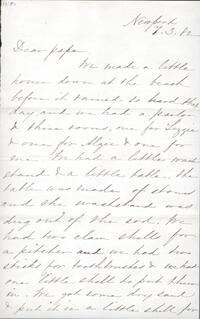 Newport
7.3.82
Dear papa
We made a little
house down at the beach
before it rained so hard the
day, and we had a parlor
& three rooms, one for Lizzie
& one for Algie & one for
me. We had a little wash
stand & a little table. the
table was made of stones
and the washstand was
dug out of the sod. We
had two clam shells for
a pitcher and we had two
sticks for toothbrushes & we had
one little shell to put them
in. We got some dry sand
& put it in a little shell for